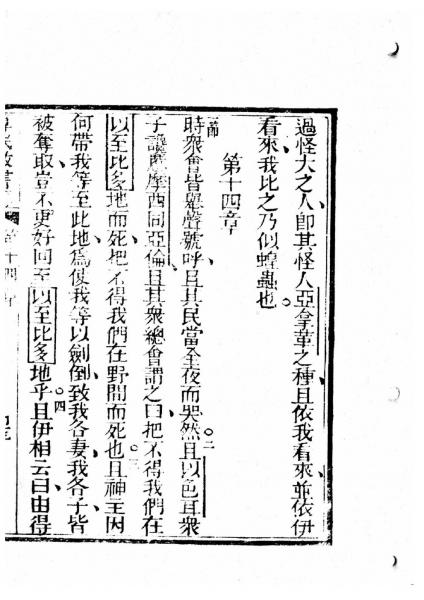 過怪大之人卽其怪人亞拿革之種且依我看來並依伊
看來我比之乃似蝗蟲也
第十四章
節時衆會皆舉聲號呼且其民當全夜而哭然二且以色耳衆
子讒摩西同亞倫且其衆總會謂之曰把不得我們在
以至比多地而死把不得我們在野間而死也三且神主因
何帶我等至此地爲使我等以劍倒致我各妻我各子皆
被奪取豈不更好回至以至比多地乎四且伊相云曰由得